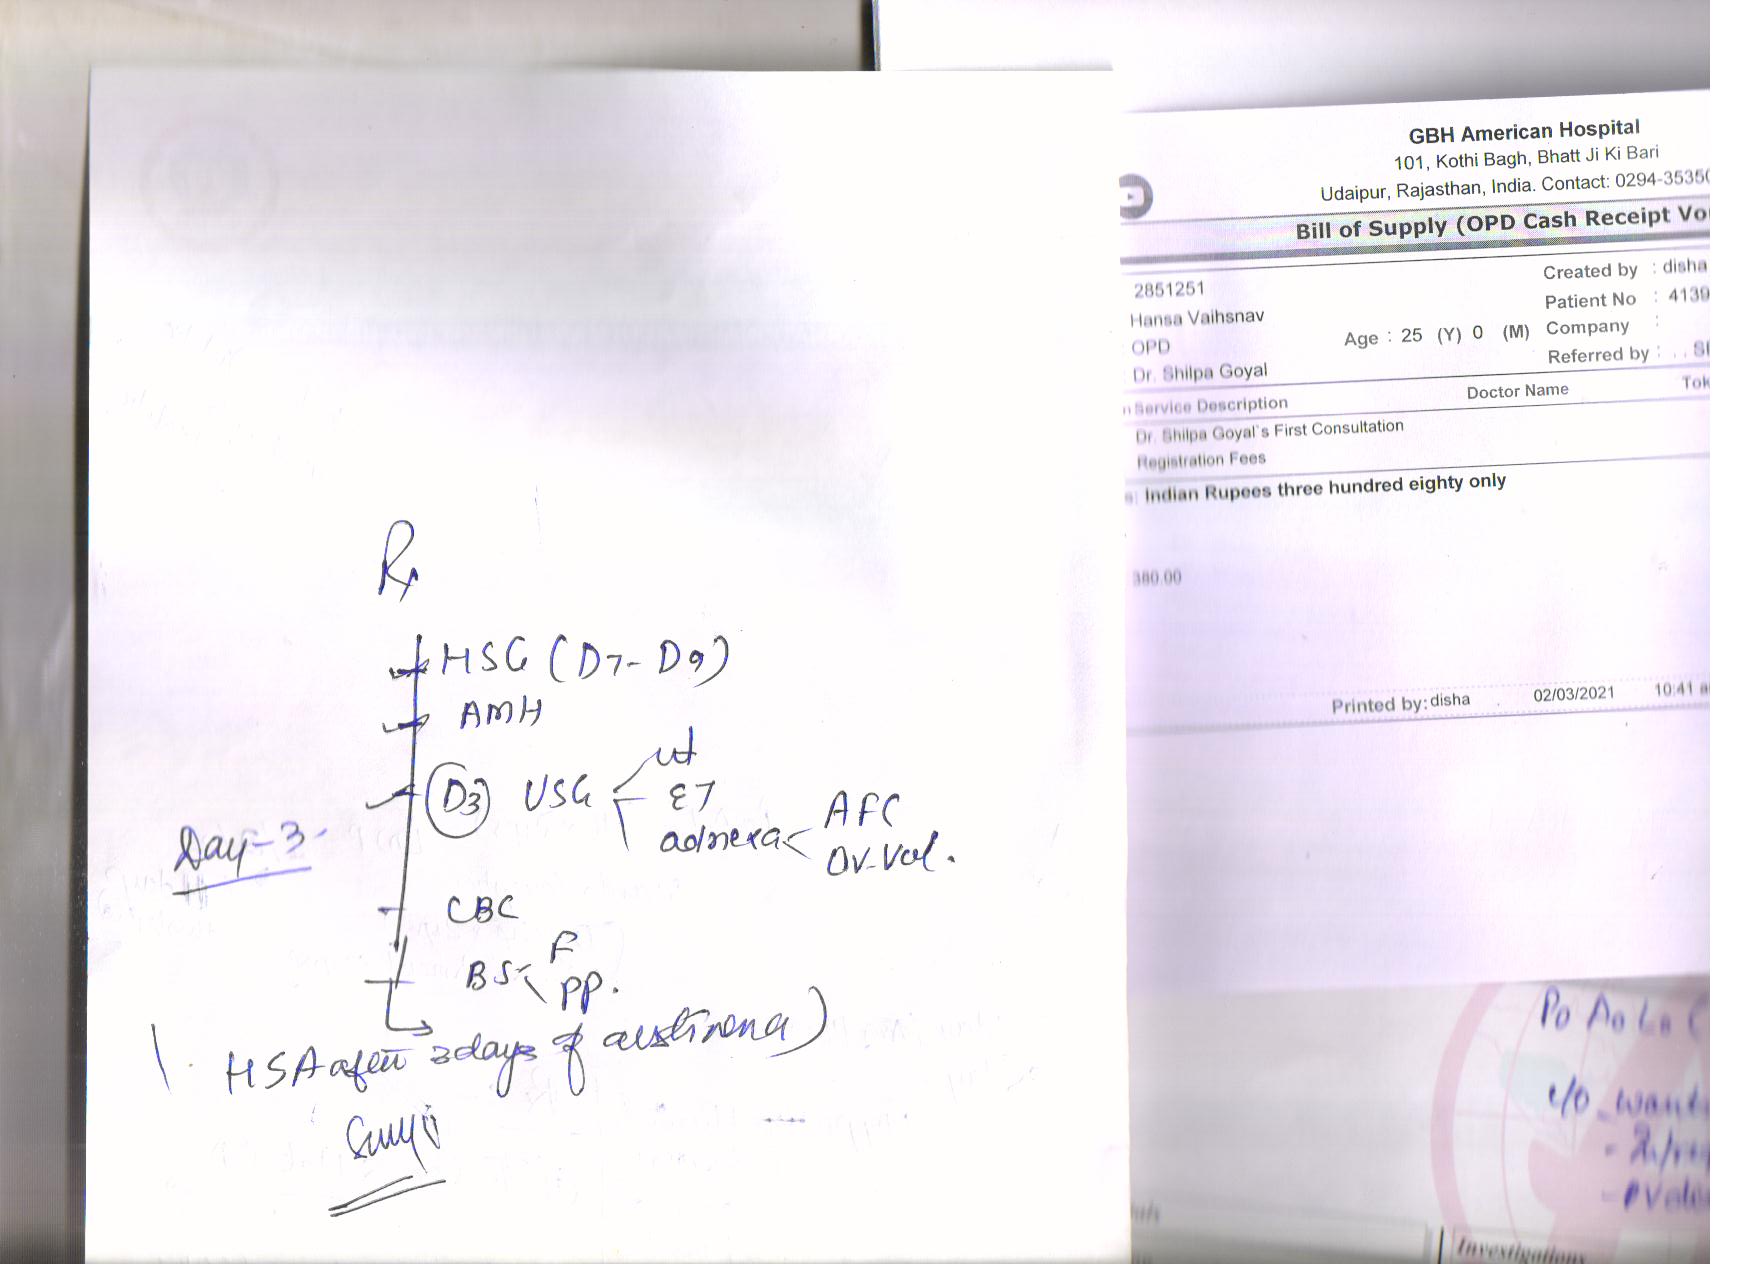 Rx
HSG (D7-D9)
AMH
D3 USG ut
ET
adnexa AFC
Ov-Vol.
Day-3
CBC
BS F
PP.
HSA after 3days of
GBH American Hospital
101, Kothi Bagh, Bhatt Ji Ki Bari
Udaipur, Rajasthan, India. Contact: 0294-3535
Bill of Supply (OPD Cash Receipt Vo
2851251
Created by : disha
Hansa Vaihsnav
Patient No : 4139
OPD
Age : 25 (Y) 0 (M) Company :
Dr. Shilpa Goyal
Referred by :
Service Description Doctor Name Tok
Dr. Shilpa Goyal's First Consultation
Registration Fees
Indian Rupees three hundred eighty only
380.00
Printed by: disha 02/03/2021 10:41 a
P0 A0 L0
c/o want
Investigations